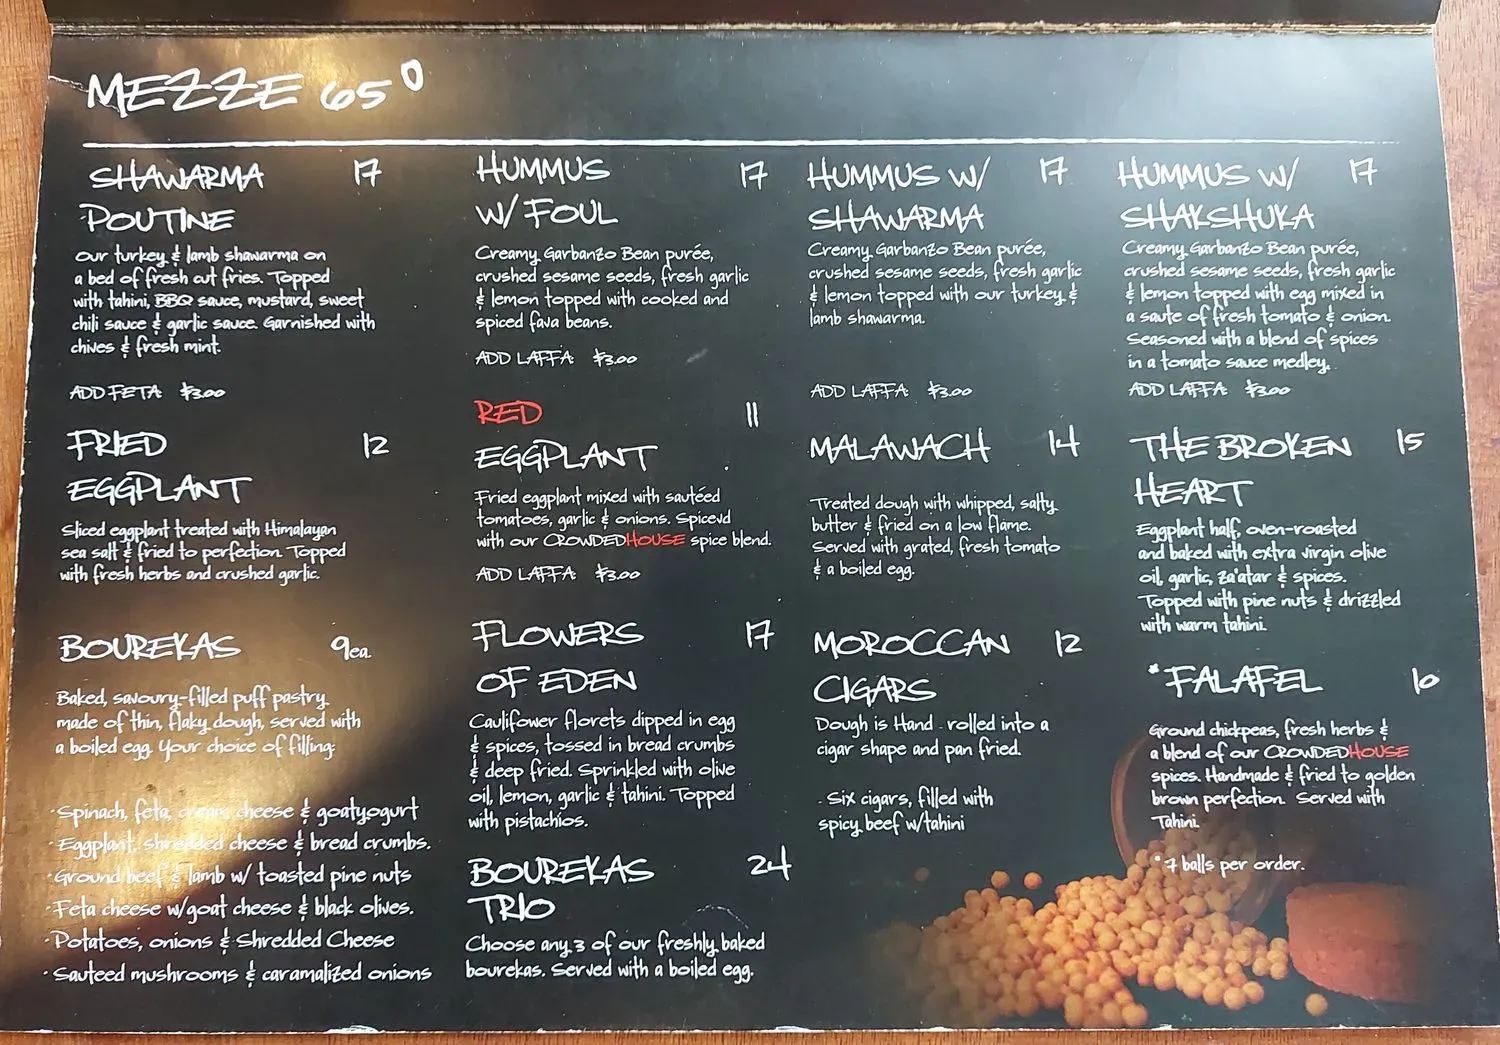 MEZZE 65°
SHAWARMA 17
POUTINE
Our turkey & lamb shawarma on
a bed of fresh cut fries. Topped
with tahini, BBQ sauce, mustard, sweet
chili sauce & garlic sauce. Garnished with
chives & fresh mint.
ADD FETA $3.00
FRIED 12
EGGPLANT
Sliced eggplant treated with Himalayan
sea salt & fried to perfection. Topped
with fresh herbs and crushed garlic.
BOUREKAS 9ea.
Baked, savoury-filled puff pastry
made of thin, flaky dough, served with
a boiled egg. Your choice of filling:
· Spinach, feta, cream cheese & goatyogurt
· Eggplant, shredded cheese & bread crumbs.
· Ground beef & lamb w/ toasted pine nuts
· Feta cheese w/goat cheese & black olives.
· Potatoes, onions & Shredded Cheese
· Sauteed mushrooms & caramalized onions
HUMMUS 17
W/ FOUL
Creamy Garbanzo Bean purée,
crushed sesame seeds, fresh garlic
& lemon topped with cooked and
spiced fava beans.
ADD LAFFA $3.00
RED 11
EGGPLANT
Fried eggplant mixed with sautéed
tomatoes, garlic & onions. Spicevd
with our CROWDEDHOUSE spice blend.
ADD LAFFA $3.00
FLOWERS 17
OF EDEN
Caulifower florets dipped in egg
& spices, tossed in bread crumbs
& deep fried. Sprinkled with olive
oil, lemon, garlic & tahini. Topped
with pistachios.
BOUREKAS 24
TRIO
Choose any 3 of our freshly baked
bourekas. Served with a boiled egg.
HUMMUS W/ 17
SHAWARMA
Creamy Garbanzo Bean purée,
crushed sesame seeds, fresh garlic
& lemon topped with our turkey &
lamb shawarma.
ADD LAFFA $3.00
MALAWACH 14
Treated dough with whipped, salty
butter & fried on a low flame.
Served with grated, fresh tomato
& a boiled egg.
MOROCCAN 12
CIGARS
Dough is Hand - rolled into a
cigar shape and pan fried.
- Six cigars, filled with
spicy beef w/tahini
HUMMUS W/ 17
SHAKSHUKA
Creamy Garbanzo Bean purée,
crushed sesame seeds, fresh garlic
& lemon topped with egg mixed in
a saute of fresh tomato & onion.
Seasoned with a blend of spices
in a tomato sauce medley.
ADD LAFFA $3.00
THE BROKEN 15
HEART
Eggplant half, oven-roasted
and baked with extra virgin olive
oil, garlic, za'atar & spices.
Topped with pine nuts & drizzled
with warm tahini.
*FALAFEL 10
Ground chickpeas, fresh herbs &
a blend of our CROWDEDHOUSE
spices. Handmade & fried to golden
brown perfection. Served with
Tahini.
*7 balls per order.